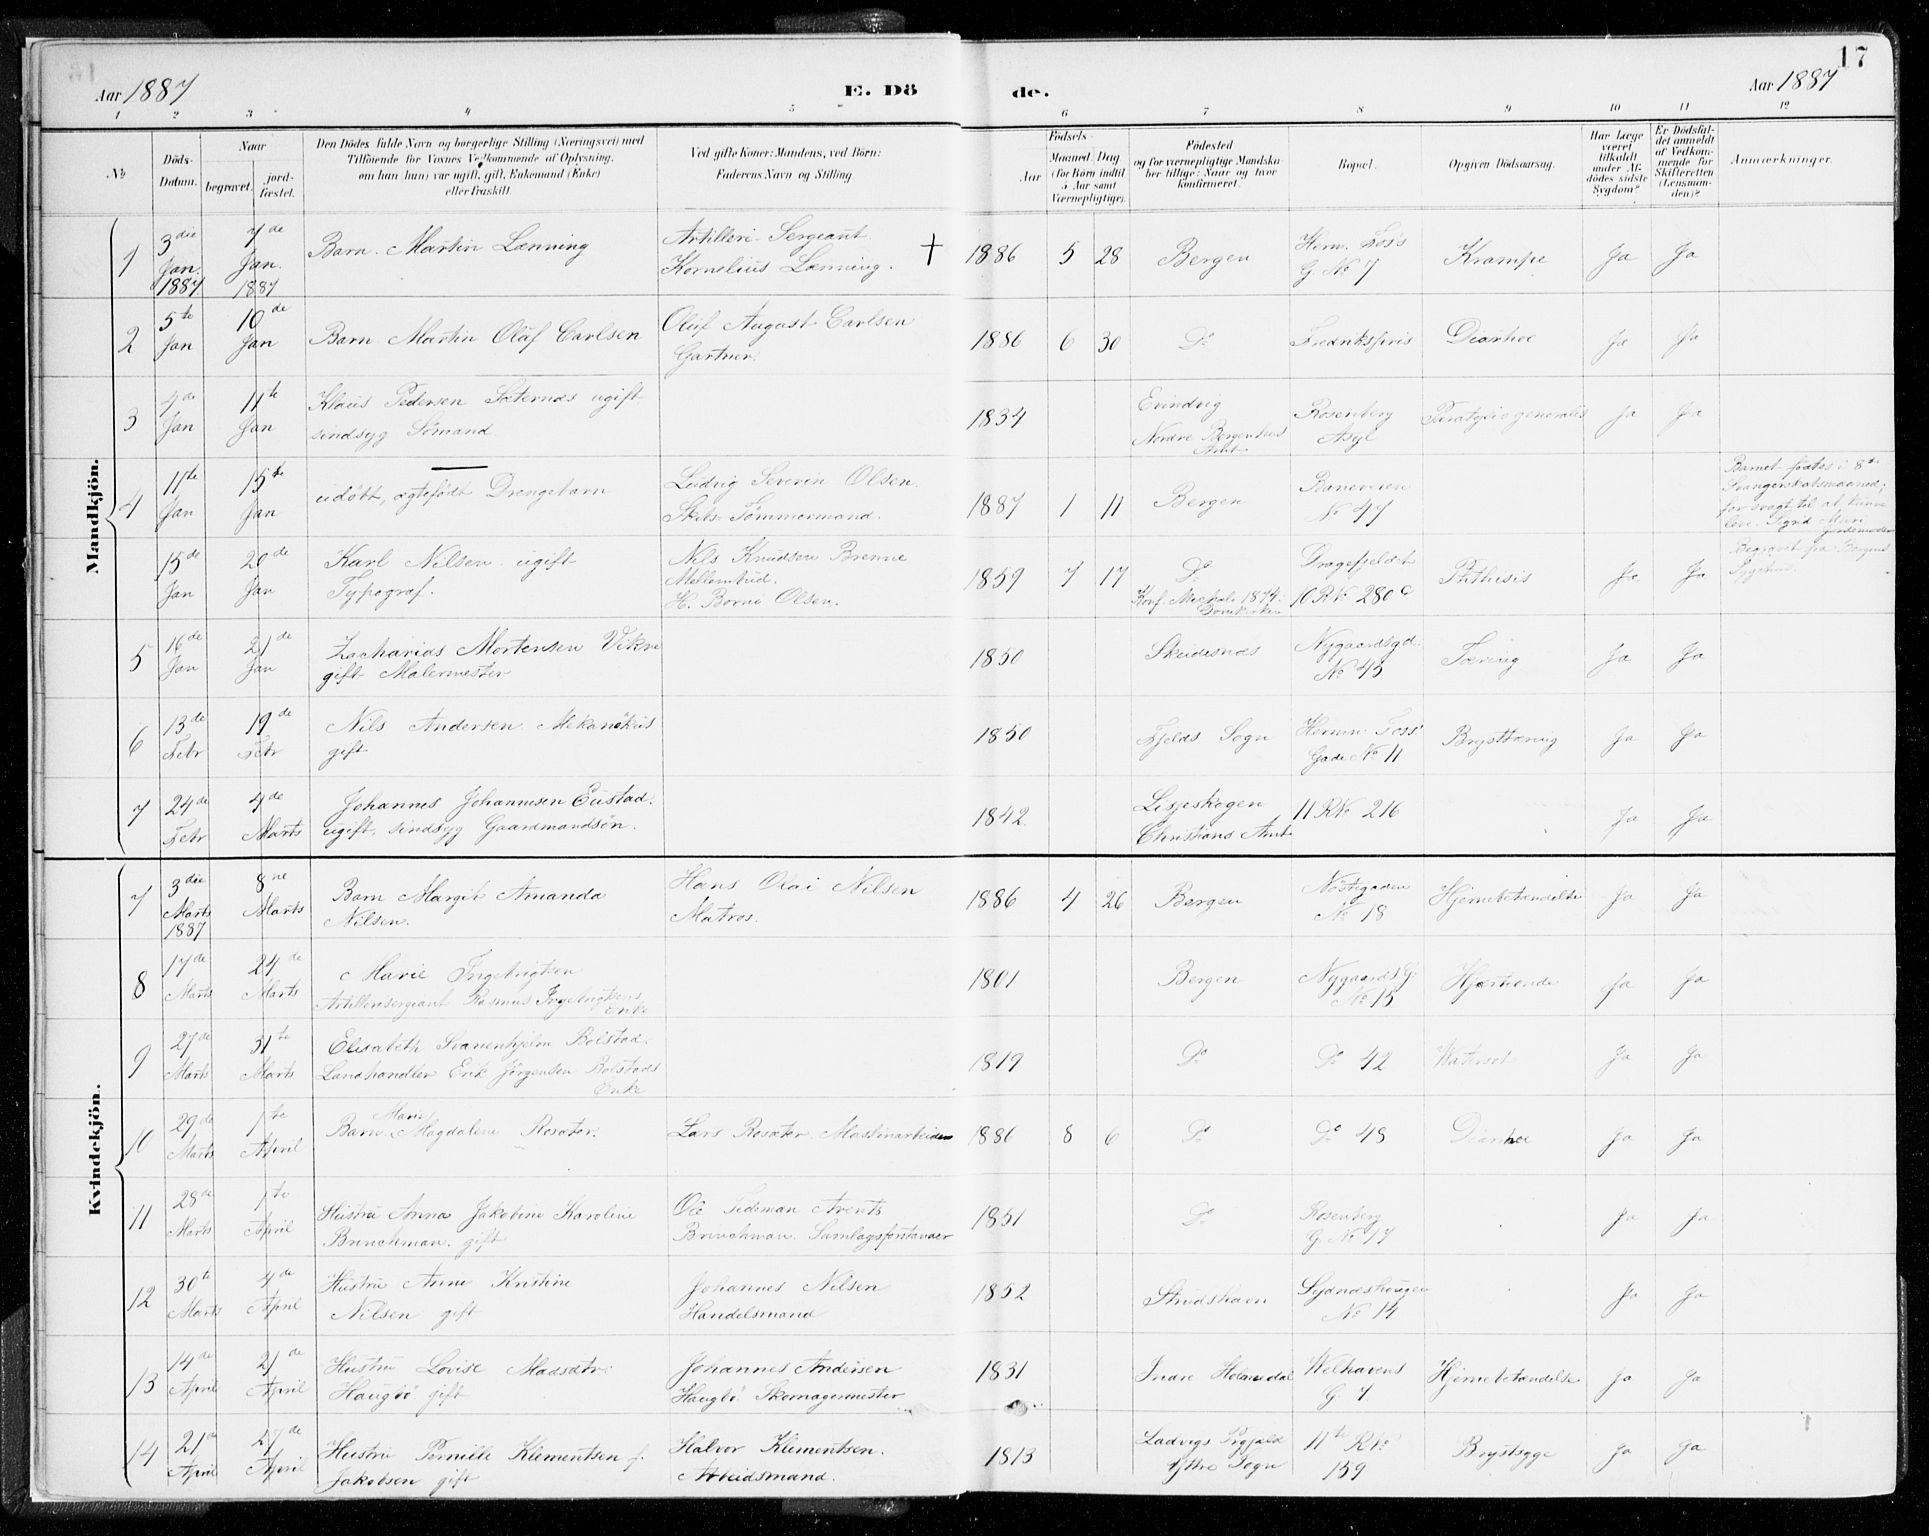 17
Aar 1887
E. Dö
de.
Aar 1887
1 2 3 4 5 6 7 8 9 10 11 12
№
Döds-Datum.
Naar
begravet.
jord-fæstet.
Den Dödes fulde Navn og borgerlige Stilling (Næringsvei) med
Tilföiende for Voxnes Vedkommende af Oplysning,
om han (hun) var ugift, gift, Enkemand (Enke)
eller fraskilt.
Ved gifte Koner: Mandens, ved Börn:
Faderens Navn og Stilling
Födsels-
Aar
Maaned Dag
(for Börn indtil
5 Aar samt
Værnepligtige).
Födested
og for værnepligtige Mandska-
ber tillige: Naar og hvor
konfirmeret.
Bopæl.
Opgiven Dödsaarsag.
Har Læge
været
tilkaldt
under Af-
dödes sidste
Sygdom?
Er Dödsfal-
det anmeldt
af Vedkom-
mende for
Skifteretten
(Lensman-
den)?
Anmærkninger.
Mandkjön.
1 3die Jan. 1887 7de Jan. 1887 Barn. Martin Lænning Artilleri-Sergeant Kornelius Lænning. † 1886 5 28 Bergen Herm. Foss G. No 7 Krampe Ja Ja
2 5te Jan 10de Jan Barn Martin Olaf Carlsen Oluf August Carlsen Gartner. 1886 6 30 Do Diarhoe Ja Ja
3 4de Jan 11te Jan Klaus Pedersen Sæternes ugift sindsyg Sömand 1834 Evindvig Nordre Bergenhus Amt Rosenberg Asyl generalis Ja Ja
4 11te Jan 15de Jan udöbt, ægtefödt Drengebarn Ludvig Severin Olsen. Skibs-Tömmermand. 1887 1 11 Bergen Baneveien No 47 Barnet fødtes i 8de Svangerskabsmaaned; for svagt til at kunne leve. Sigrid Jordemoder
15de Jan 20de Jan Karl Nilsen ugift Typograf. Nils Knudsen Brenne H. Borne Olsen. 1859 7 17 Do Konf. Michali 1874. Domkirken Dragefjeldet 10 R No 280 c Phthisis Ja Ja Begravet fra Bergens Sygehus.
5 16de Jan 21de Jan Zacharias Mortensen Vikne gift Malermester 1850 Skudesnes Nygaardsgd. No 45 Tæring Ja Ja
6 13de Febr 19de Febr Nils Andersen Mekanikus gift 1850 Fjelds Sogn Herm. Foss' Gade No 11 Brysttæring Ja Ja
7 24de Febr 4de Marts Johannes Johannesen Eustad. ugift, sindsyg Gaardmandsön. 1842 Lesjeskogen Christians Amt 11 R No 216 Ja Ja
Kvindekjön.
7 3die Marts 1887 8de Marts Barn Margit Amanda Nilsen. Hans Olai Nilsen Matros. 1886 4 26 Bergen Nöstegaden No 18 Hjernebetændelse Ja Ja
8 17de Marts 24de Marts Marie Ingebrigtsen Artillerisergeant Rasmus Ingebrigtsens Enke 1801 Bergen Nygaards G. No 15 Hjerteonde Ja Ja
9 27de Marts 31te Marts Elisabeth Svanenhjelm Bolstad. Landhandler Erik Jörgensen Bolstads Enke 1819 Do Do 42 Vatersot Ja Ja
10 29de Marts 1te April Barn Marie Magdalene Rosæter. Lars Rosæter Maskinarbeider 1886 8 6 Do Do 48 Diarhoe Ja Ja
11 28de Marts 1te April Hustru Anna Jakobine Karoline Brinchman. gift Ole Tideman Arents Brinchman. Samlagsforstander 1851 Do Rosenberg G. No 17 Ja Ja
12 30te Marts 4de April Hustru Anne Kristine Nilsen gift Johannes Nilsen Handelsmand 1852 Sydneshougen No 14 Ja Ja
13 14de April 21de April Hustru Lovise Madsdtr. Haugbö gift Johannes Andersen Haugbö Skomagermester 1831 Indre Holmedal Welhavens G. 7 Hjernebetændelse Ja Ja
14 21de April 27de April Hustru Pernille Klementsen f. Jakobsen gift Halvor Klementsen. Arbeidsmand. 1813 Ladvigs Prgjæld Yttre Sogn 11te R No 159 Brystsyge Ja Ja